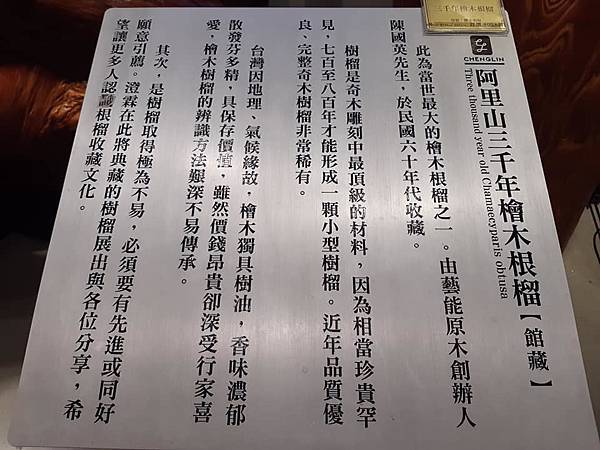 三千年檜木根榴
CHENGLIN
阿里山三千年檜木根榴【館藏】
Three thousand year old Chamaecyparis obtusa
此為當世最大的檜木根榴之一。由藝能原木創辦人
陳國英先生，於民國六十年代收藏。
樹榴是奇木雕刻中最頂級的材料，因為相當珍貴罕
見，七百至八百年才能形成一顆小型樹榴。近年品質優
良、完整奇木樹榴非常稀有。
台灣因地理、氣候緣故，檜木獨具樹油，香味濃郁
散發芬多精，具保存價值，雖然價錢昂貴卻深受行家喜
愛，檜木樹榴的辨識方法艱深不易傳承。
其次，是樹榴取得極為不易，必須要有先進或同好
願意引薦。澄霖在此將典藏的樹榴展出與各位分享，希
望讓更多人認識根榴收藏文化。